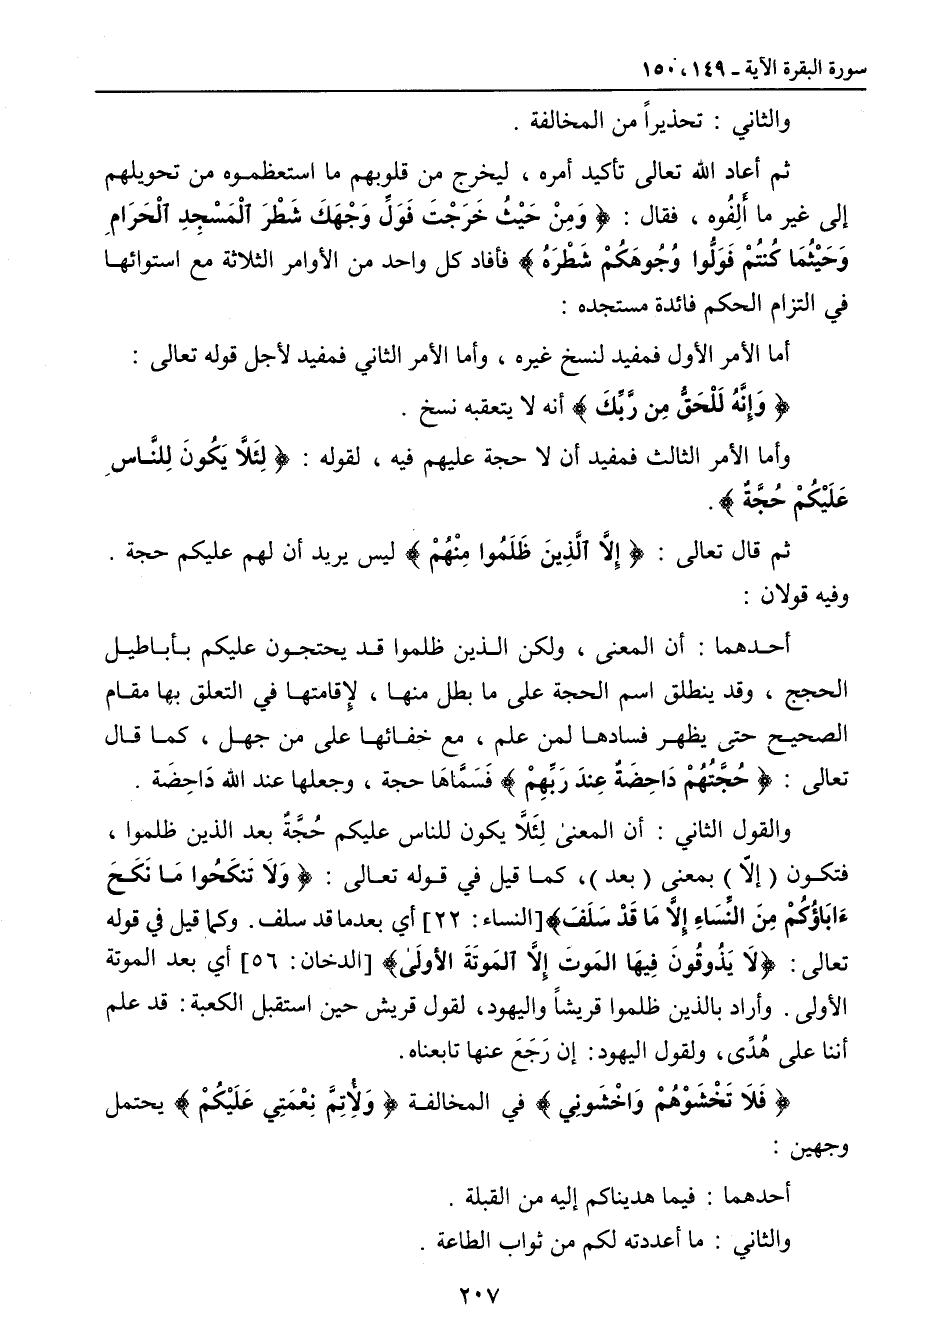 سورة البقرة الآية ـ ١٤٩ ، ١٥٠
والثاني : تحذيراً من المخالفة .
ثم أعاد الله تعالى تأكيد أمره ، ليخرج من قلوبهم ما استعظموه من تحويلهم
إلى غير ما أَلِفُوه ، فقال : ﴿ وَمِنْ حَيْثُ خَرَجْتَ فَوَلِّ وَجْهَكَ شَطْرَ ٱلْمَسْجِدِ ٱلْحَرَامِ
وَحَيْثُمَا كُنتُمْ فَوَلُّوا وُجُوهَكُمْ شَطْرَهُ ﴾ فأفاد كل واحد من الأوامر الثلاثة مع استوائها
في التزام الحكم فائدة مستجده :
أما الأمر الأول فمفيد لنسخ غيره ، وأما الأمر الثاني فمفيد لأجل قوله تعالى :
﴿ وَإِنَّهُ لَلْحَقُّ مِن رَّبِّكَ ﴾ أنه لا يتعقبه نسخ .
وأما الأمر الثالث فمفيد أن لا حجة عليهم فيه ، لقوله : ﴿ لِئَلَّا يَكُونَ لِلنَّاسِ
عَلَيْكُمْ حُجَّةٌ ﴾ .
ثم قال تعالى : ﴿ إِلَّا ٱلَّذِينَ ظَلَمُوا مِنْهُمْ ﴾ ليس يريد أن لهم عليكم حجة .
وفيه قولان :
أحدهما : أن المعنى ، ولكن الذين ظلموا قد يحتجون عليكم بأباطيل
الحجج ، وقد ينطلق اسم الحجة على ما بطل منها ، لإقامتها في التعلق بها مقام
الصحيح حتى يظهر فسادها لمن علم ، مع خفائها على من جهل ، كما قال
تعالى : ﴿ حُجَّتُهُمْ دَاحِضَةٌ عِندَ رَبِّهِمْ ﴾ فَسَمَّاهَا حجة ، وجعلها عند الله دَاحِضَة .
والقول الثاني : أن المعنىٰ لِئَلَّا يكون للناس عليكم حُجَّةٌ بعد الذين ظلموا ،
فتكون ( إلاّ ) بمعنى ( بعد )، كما قيل في قوله تعالى : ﴿ وَلَا تَنكَحُوا مَا نَكَحَ
ءَابَاؤُكُمْ مِنَ النِّسَاءِ إِلَّا مَا قَدْ سَلَفَ﴾[النساء: ٢٢] أي بعدما قد سلف. وكما قيل في قوله
تعالى: ﴿لَا يَذُوقُونَ فِيهَا المَوتَ إِلَّا ٱلمَوتَةَ الأولَىٰ﴾ [الدخان: ٥٦] أي بعد الموتة
الأولى. وأراد بالذين ظلموا قريشاً واليهود، لقول قريش حين استقبل الكعبة: قد علم
أننا على هُدًى، ولقول اليهود: إن رَجَعَ عنها تابعناه.
﴿ فَلَا تَخْشَوْهُمْ وَاخْشَوني ﴾ في المخالفة ﴿ وَلِأُتِمَّ نِعْمَتِي عَلَيْكُمْ ﴾ يحتمل
وجهين :
أحدهما : فيما هديناكم إليه من القبلة .
والثاني : ما أعددته لكم من ثواب الطاعة .
٢٠٧